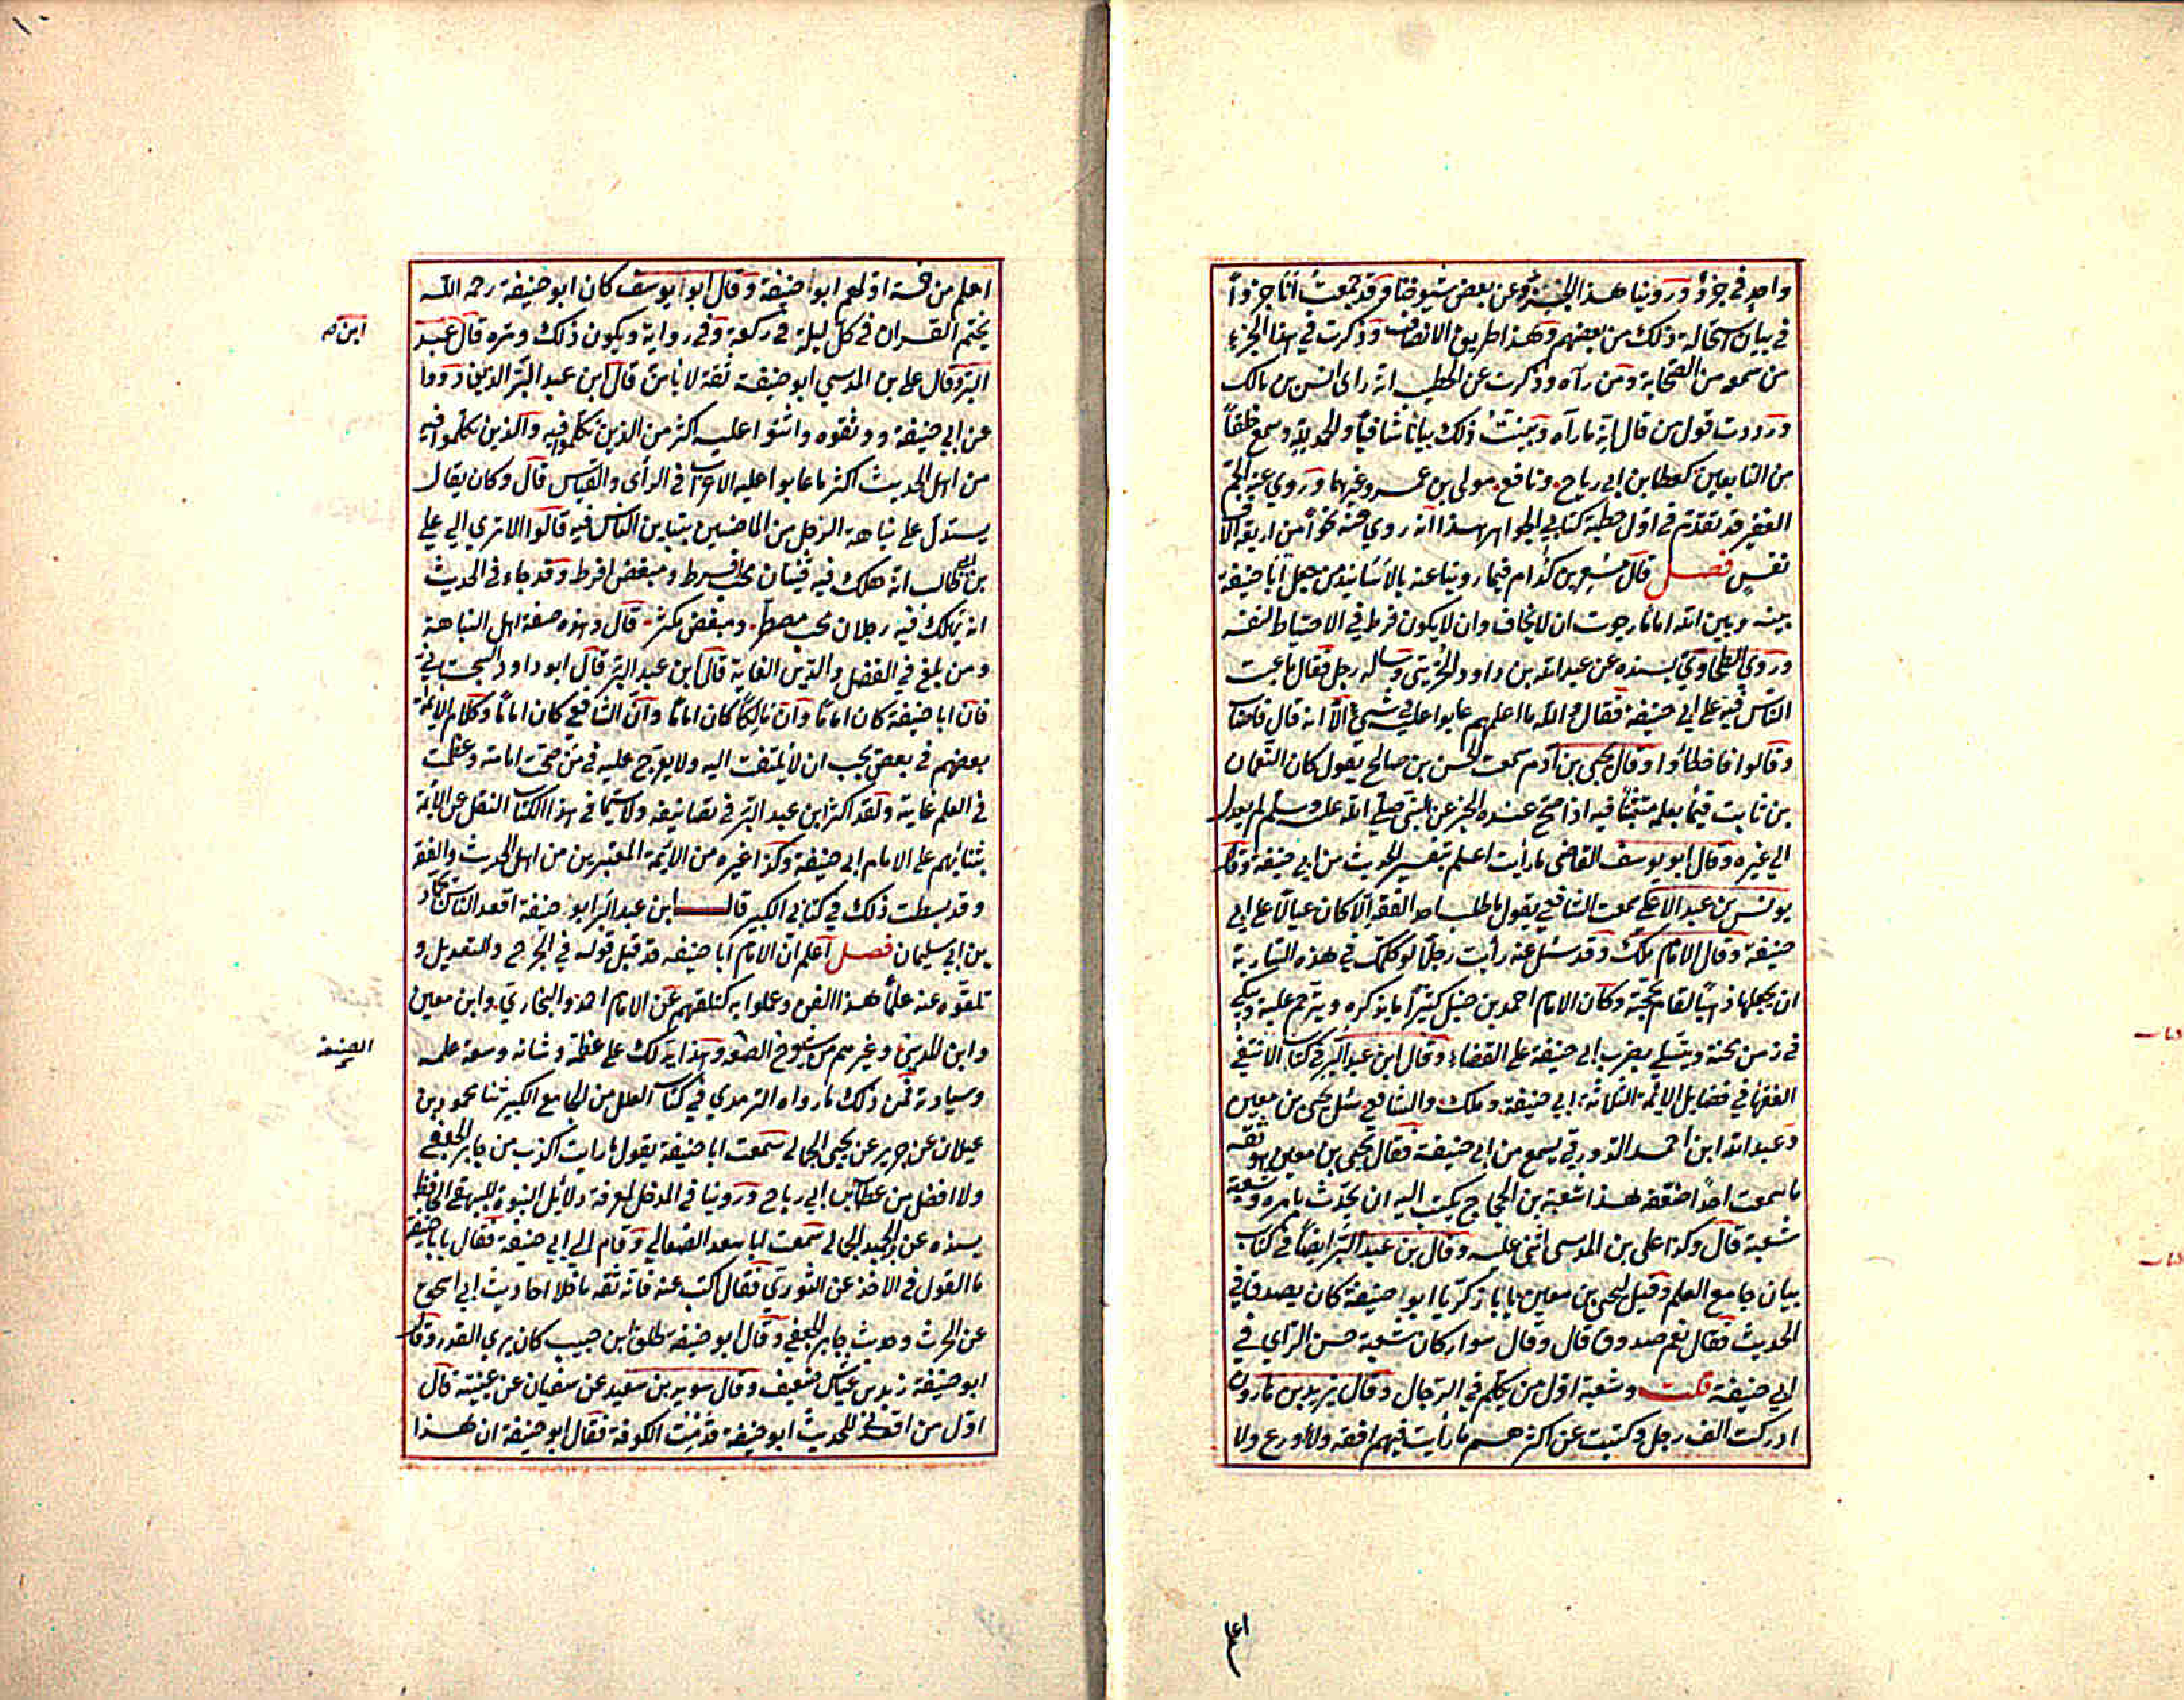 واحد في جزؤ وروينا هذا الجزء عن بعض شيوخنا وقد جمعت انا جزواً
في بيان استحالة ذلك من بعضهم وهذا طريق الانصاف وذكرت في هذا الجزء
من سمعه من الصحابة ومن رآه وذكرت عن الخطيب انه راى انس بن مالك
ورددت قول من قال انه ما رآه وبينت ذلك بيانا شافياً والحمد لله وسمع خلقاً
من التابعين كعطا بن ابي رباح ونافع مولى بن عمر وغيرهما وروي عنه الجم
الغفير قد تقدم في اول خطبة كتابي الجواهر هذا انه روي عنه نحواً من اربعة الاف
نفس فصل قال مسعر بن كدام فيما روينا عنه بالاسانيد من جعل ابا حنيفة
بينه وبين الله اماما رجوت ان لا يخاف وان لا يكون فرط في الاحتياط لنفسه
وروي الطحاوي بسنده عن عبد الله بن داود الخريبي وساله رجل فقال ما عيب
الناس فيه على ابي حنيفة فقال والله ما اعلمهم عابوا عليه في شيء الا انه قال فاصاب
وقالوا فاخطاؤا وقال يحيى بن آدم سمعت الحسن بن صالح يقول كان النعمان
بن ثابت فيما بعلمه متثبتا فيه اذا صح عنده الخبر عن النبي صلى الله عليه وسلم لم يعدل
الي غيره وقال ابو يوسف القاضى ما رأيت اعلم بتفسير الحديث من ابي حنيفة وقال
يونس بن عبد الاعلى سمعت الشافعي يقول ما طلب احد الفقه الا كان عيالا على ابي
حنيفة وقال الامام ملك وقد سئل عنه رأيت رجلا لو كلمك في هذه السارية
ان يجعلها ذهبا لقام بحجته وكان الامام احمد بن حنبل كثيراً ما يذكره ويترحم عليه ويبكي
في زمن محنته ويتسلي بضرب ابي حنيفة على القضاء وقال ابن عبد البر في كتاب الانتقي
الفقها في فضايل الايمة الثلاثة ابي حنيفة وملك والشافعي سئل يحيى بن معين
وعبد الله ابن احمد الدورقي يسمع من ابي حنيفة فقال يحيى بن معين هو ثقة
ما سمعت احداً ضعفه هذا شعبة بن الحجاج يكتب اليه ان يحدث بامره وشعبة
شعبة قال وكذا على بن المدسي اثنى عليه وقال بن عبد البر ايضاً في كتاب
بيان جامع العلم وقيل ليحيى بن معين يا بازكريا ابو حنيفة كان يصدق في
الحديث فقال نعم صدوق قال وقال سوار كان شعبة حسن الراي في
ابي حنيفة قلت وشعبة اول من تكلم في الرجال وقال يزيد بن هارون
ادركت الف رجل وكتبت عن اكثرهم ما رأيت فيهم افقه ولا اورع ولا
اعلم
اعلم من خمسة اولهم ابوا حنيفة وقال ابو ايوسف كان ابو حنيفة رحمه الله
يختم القران في كل ليلة في ركعة وفي رواية ويكون ذلك وتره قال عبد
ابن صه
البر وقال على بن المدسي ابو حنيفة ثقة لا باس قال ابن عبد البر الذين رووا
عن ابي حنيفة ووثقوه واثنوا عليه اكثر من الذين تكلموا فيه والذين تكلموا فيه
من اهل الحديث اكثر ما عابوا عليه الاغراب في الرأى والقياس قال وكان يقال
يستدل على نباهة الرجل من الماضيين بتباين الناس فيه قالوا الا تري الي علي
بن ابي طالب انه هلك فيه فئتان محب افرط ومبغض افرط وقد جاء في الحديث
انه يهلك فيه رجلان محب مصطر ومبغض مكثر قال وهذه صفة اهل النباهة
ومن بلغ في الفضل والدين الغاية قال ابن عبد البر قال ابو داود السجستاني
فان ابا حنيفة كان اماما وان مالكا كان اماما وان الشافعي كان اماما وكلام الايمة
بعضهم في بعض يجب ان لا يلتفت اليه ولا يعرج عليه في من صحت امامته وعظمت
في العلم غايته ولقد اكثر ابن عبد البر في تصانيفه ولاسيما في هذا الكتاب النقل عن الايمة
بثنائهم على الامام ابي حنيفة وكذا غيره من الايمة المعتبرين من اهل الحديث والفقه
وقد بسطت ذلك في كتابي الكبير قال ابن عبد البر ابو حنيفة اقعد الناس بحماد
بن ابي سليمان فصل اعلم ان الامام ابا حنيفه قد قبل قوله في الجرح والتعديل و
تلقوه عنه علما هذا الفن وعملوا به كتلقيهم عن الامام احمد والبخاري وابن معين
وابن المديني وغيرهم من شيوخ الصنعه وهذا يدلك على عظمته وشانه وسعة علمه
الصنعة
وسيادته فمن ذلك ما رواه الترمذي في كتاب العلل من الجامع الكبير ثنا محمود بن
غيلان عن جرير عن يحيى الجمالي سمعت ابا حنيفة يقول ما رايت اكذب من جابر الجعفي
ولا افضل من عطا بن ابي رباح وروينا في المدخل لمعرفة دلائل النبوة للبيهقي الحافظ
بسنده عن عبد الحميد الجمالي سمعت ابا سعد الصغاني وقام الي ابي حنيفة فقال يا باحنيفة
ما القول في الاخذ عن الثوري فقال اكتب عنه فانه ثقه ما خلا احاديث ابي اسحق
عن الحرث وحديث جابر الجعفي وقال ابو حنيفه طلق ابن حبيب كان يري القدر وقال
ابو حنيفة زيد بن عياش ضعيف وقال سويد بن سعيد عن سفيان عن عيينه قال
اول من اقعدني للحديث ابو حنيفة قدمت الكوفة فقال ابو حنيفة ان هذا